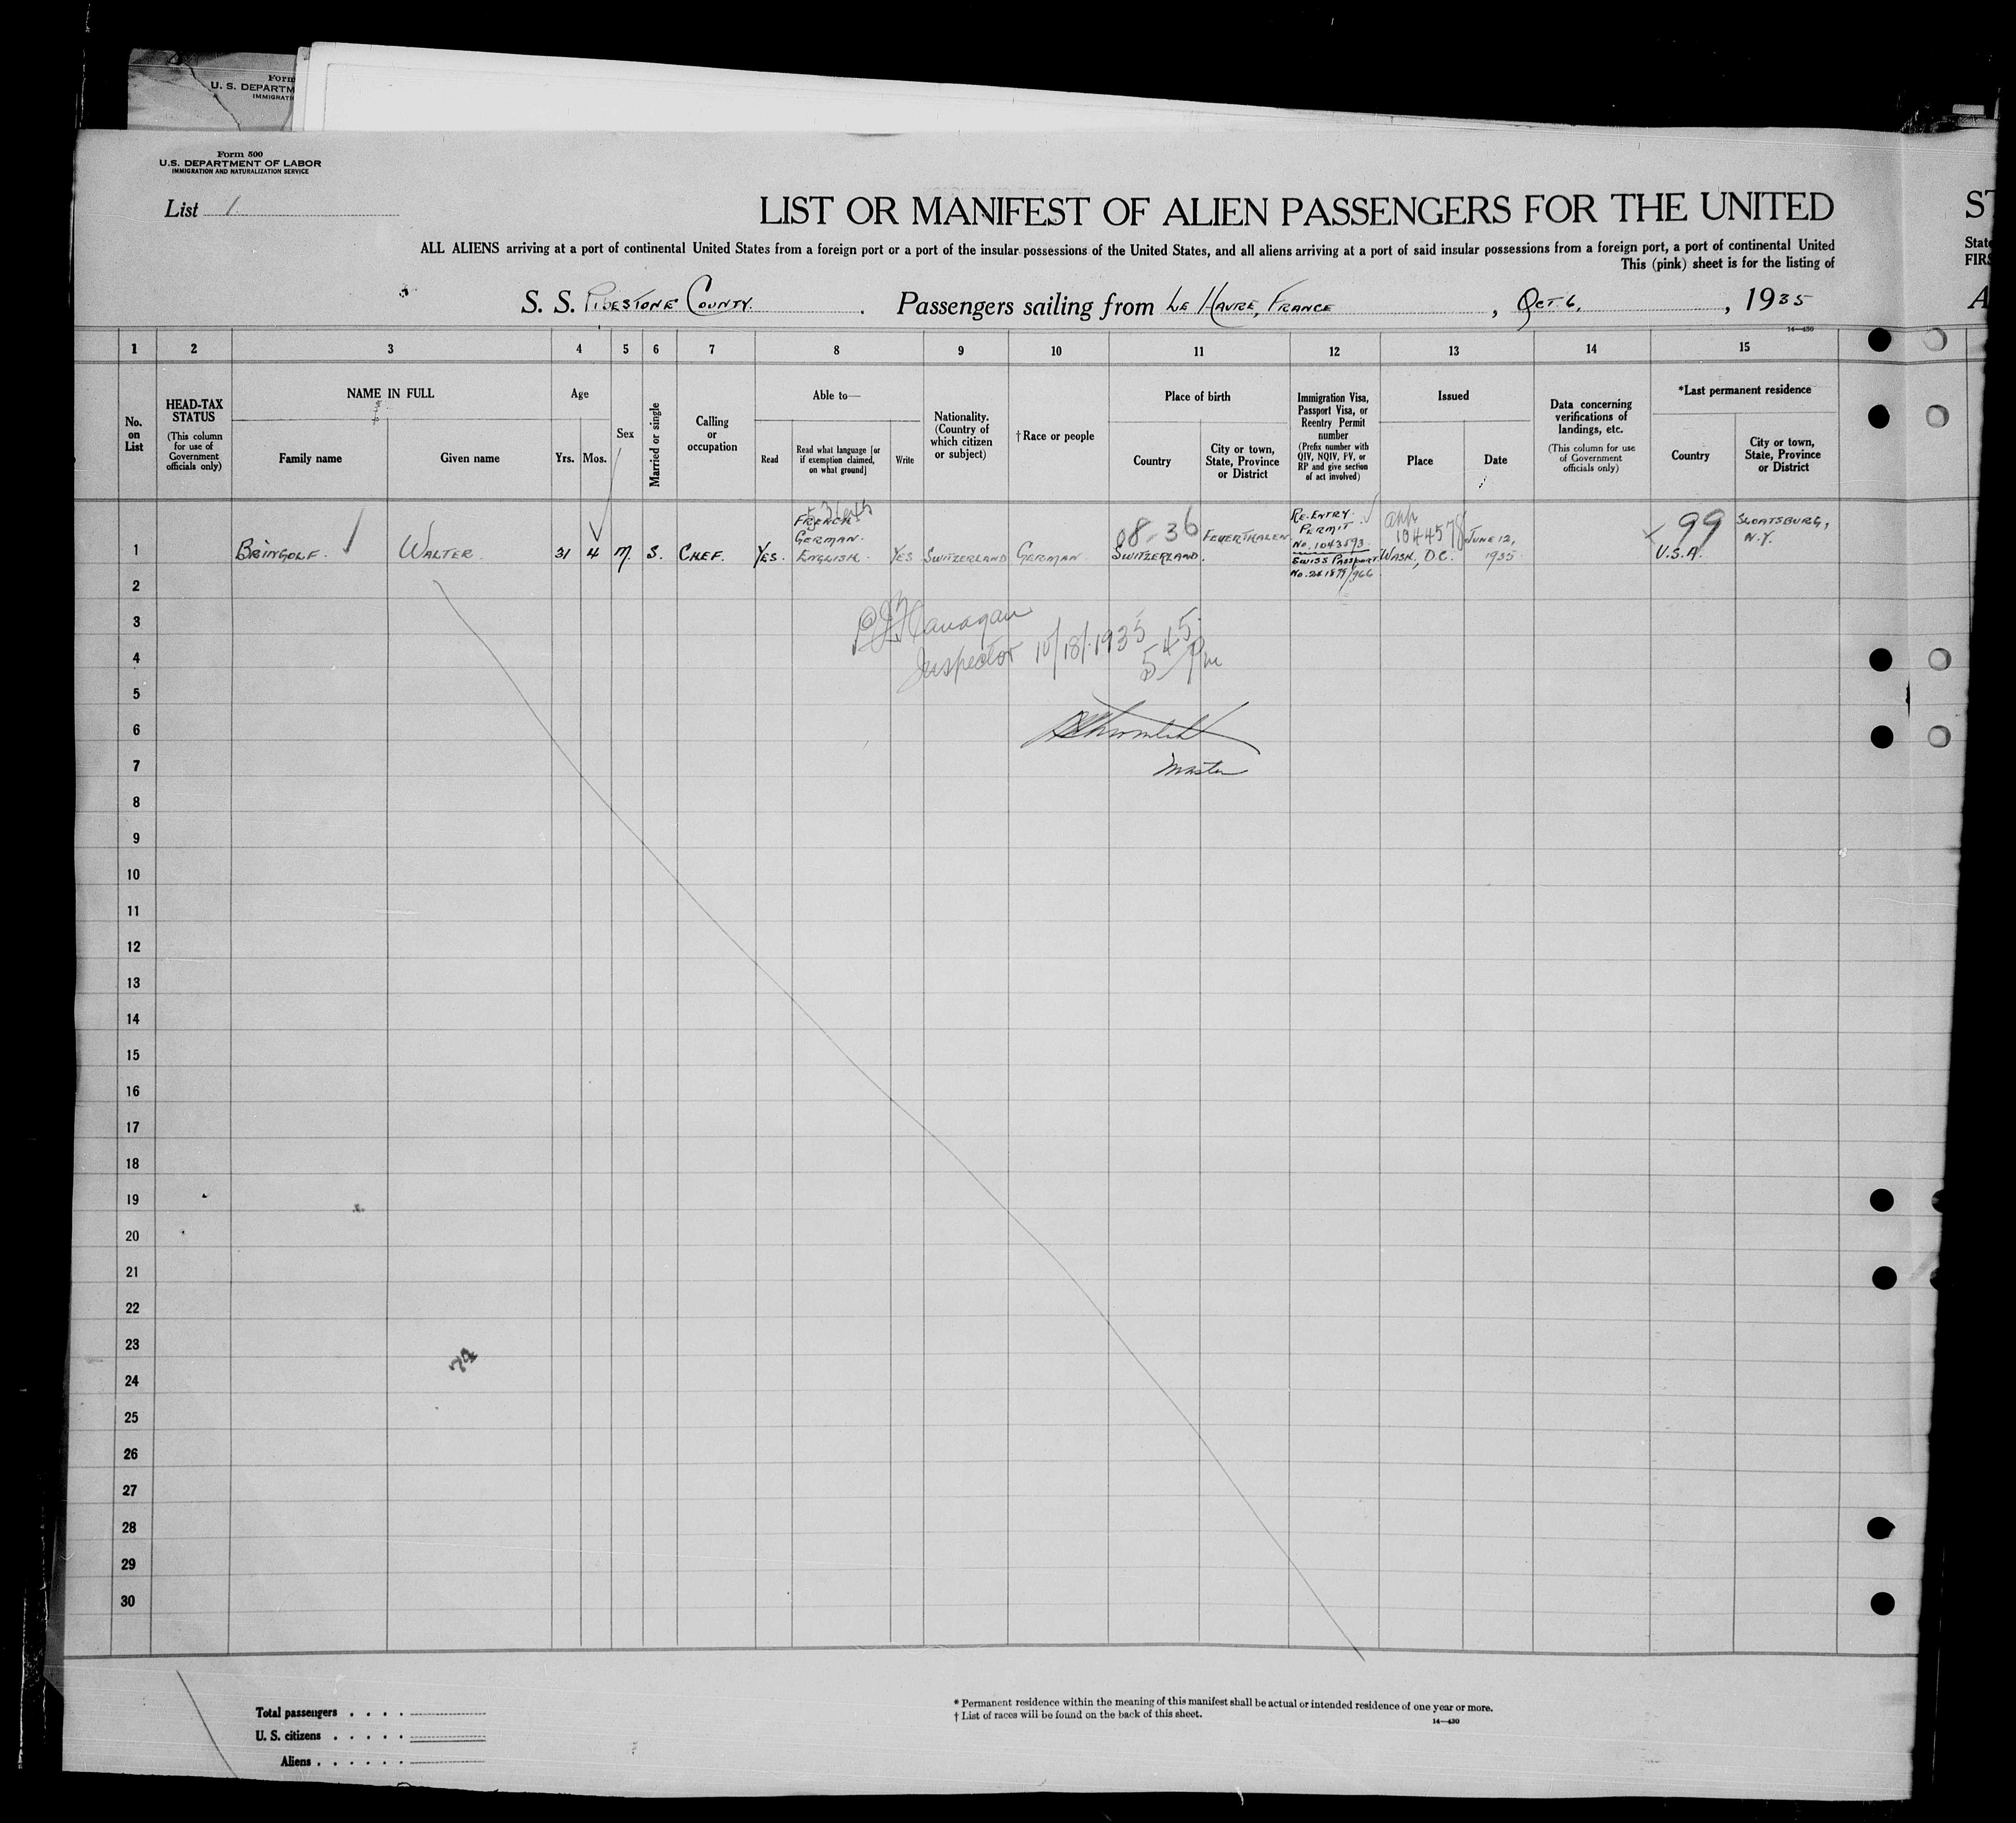 Form
U. S. DEPARTM
IMMIGRATI
Form 500
U.S. DEPARTMENT OF LABOR
IMMIGRATION AND NATURALIZATION SERVICE
List 1
LIST OR MANIFEST OF ALIEN PASSENGERS FOR THE UNITED
ST
ALL ALIENS arriving at a port of continental United States from a foreign port or a port of the insular possessions of the United States, and all aliens arriving at a port of said insular possessions from a foreign port, a port of continental United
State
This (pink) sheet is for the listing of
FIRS
S. S. PIPESTONE COUNTY. Passengers sailing from LE HAVRE, FRANCE, OCT. 6, 1935
A
14—430
1 2 3 4 5 6 7 8 9 10 11 12 13 14 15
No. on List
HEAD-TAX STATUS
(This column for use of Government officials only)
NAME IN FULL
Family name
Given name
Age
Yrs.
Mos.
Sex
Married or single
Calling or occupation
Able to—
Read
Read what language [or if exemption claimed, on what ground]
Write
Nationality. (Country of which citizen or subject)
† Race or people
Place of birth
Country
City or town, State, Province or District
Immigration Visa, Passport Visa, or Reentry Permit number
(Prefix number with QIV, NQIV, PV, or RP and give section of act involved)
Issued
Place
Date
Data concerning verifications of landings, etc.
(This column for use of Government officials only)
*Last permanent residence
Country
City or town, State, Province or District
1 BRINGOLF. WALTER. 31 4 M S. CHEF. YES. FRENCH GERMAN. ENGLISH. YES SWITZERLAND GERMAN. 08-36 SWITZERLAND. FEUERTHALEN. RE-ENTRY PERMIT No. 1043593 SWISS PASSPORT app 1044578 WASH., D.C. JUNE 12, 1935. 99 U.S.A. SLOATSBURG, N.Y.
2
3
Flanagan
4
Inspector 10/18/1935 5 45 Pm
5
6
7
Master
8
9
10
11
12
13
14
15
16
17
18
19
20
21
22
23
24
25
26
27
28
29
30
Total passengers
U. S. citizens
Aliens
* Permanent residence within the meaning of this manifest shall be actual or intended residence of one year or more.
† List of races will be found on the back of this sheet.
14—430